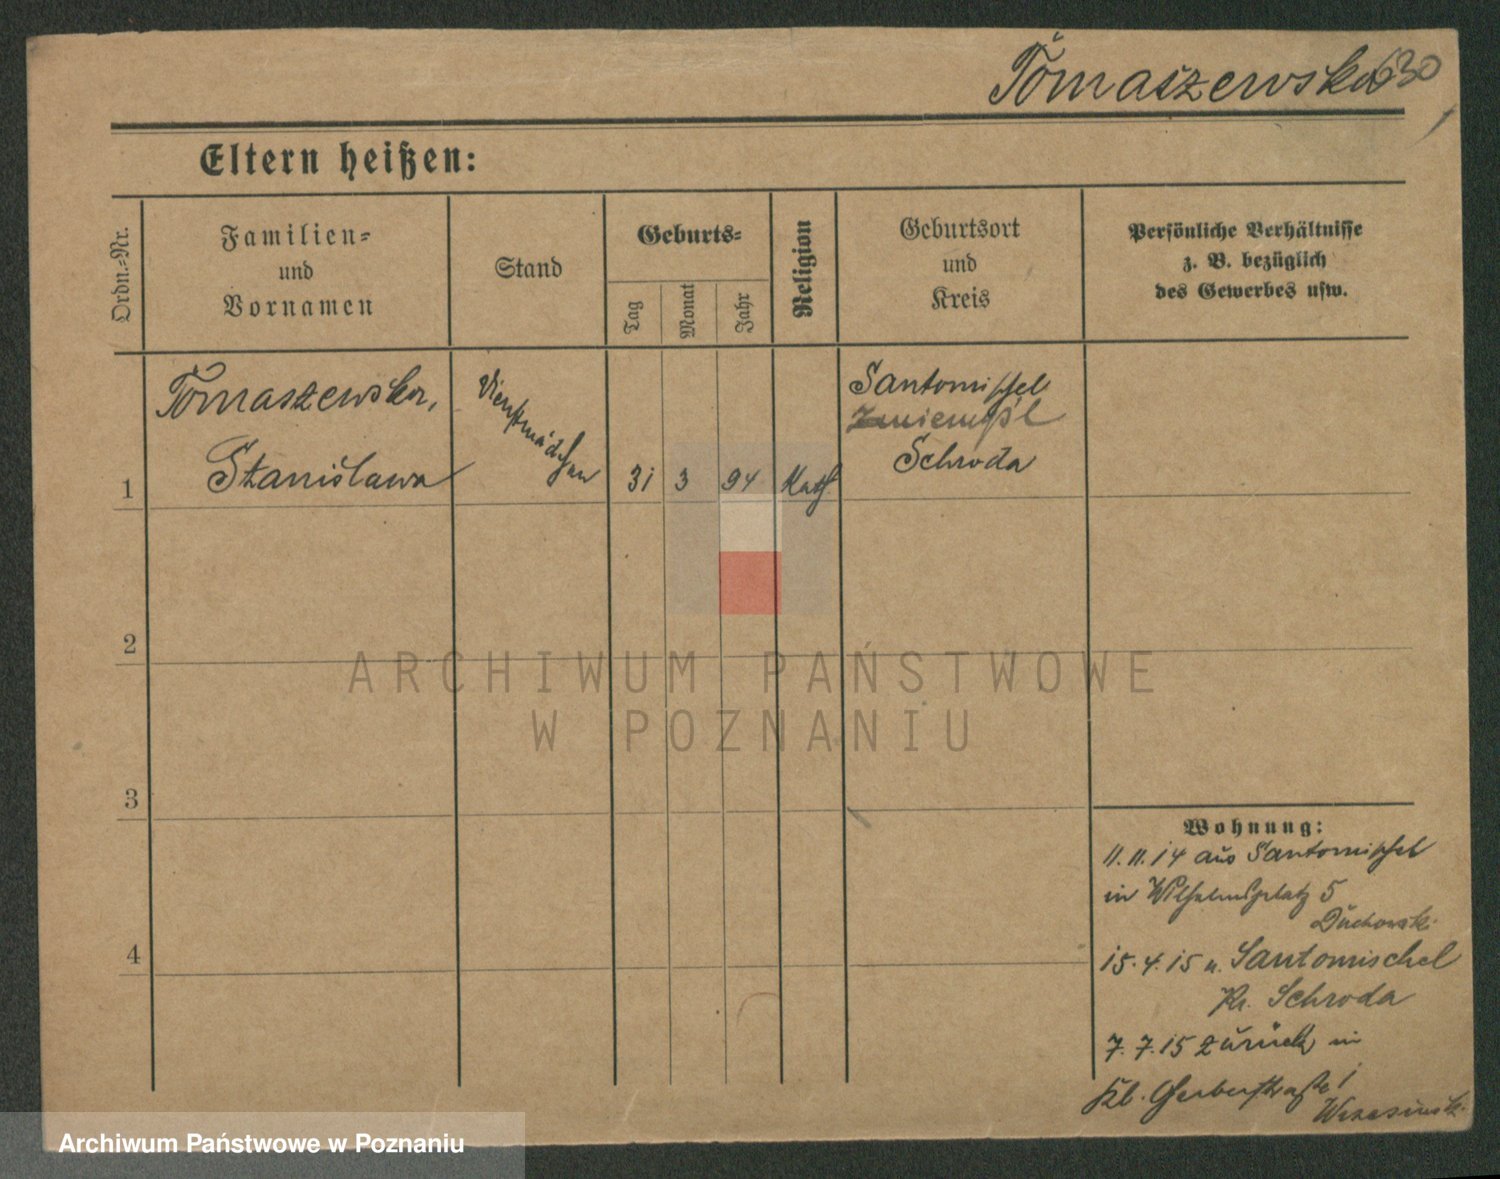 Tomaszewska 630
Eltern heißen:
Ordn.-Nr.
Familien-
und
Vornamen
Stand
Geburts-
Tag
Monat
Jahr
Religion
Geburtsort
und
Kreis
Persönliche Verhältnisse
z. B. bezüglich
des Gewerbes usw.
Tomaszewska,
Stanislawa
Dienstmädchen
1
31 3 94 Kath
Santomischel
Schroda
2
3
4
Wohnung:
11.11.14 aus Santomischel
in Wilhelmsplatz 5
Duchowski
15.4.15 n. Santomischel
Kr. Schroda
7.7.15 zurück in
Kl. Gerberstraße 1
Wrzesinski
ARCHIWUM PAŃSTWOWE
W POZNANIU
Archiwum Państwowe w Poznaniu